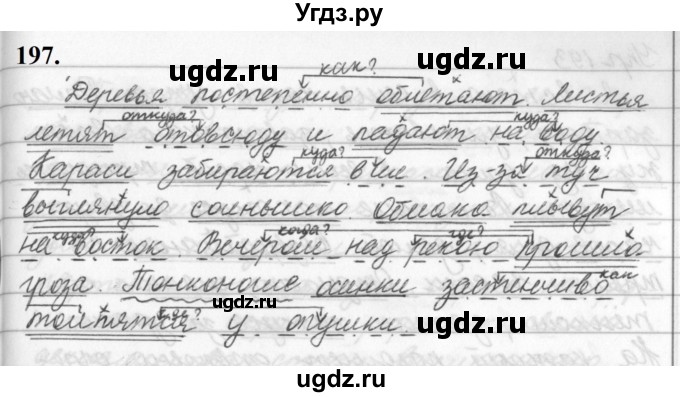 Угдз.ру
197.
как?
Деревья постепенно облетают. Листья
откуда? куда?
летят отовсюду и падают на воду
куда? откуда?
Караси забираются в ил. Из-за туч
выглянуло солнышко. Облака плывут
куда? когда? где?
на восток. Вечером над рекою прошла
гроза. Тонконогие осинки застенчиво
как
толпятся у опушки.
где?
ugdz.ru
ugdz.ru
ugdz.ru
ugdz.ru
ugdz.ru
ugdz.ru
ugdz.ru
ugdz.ru